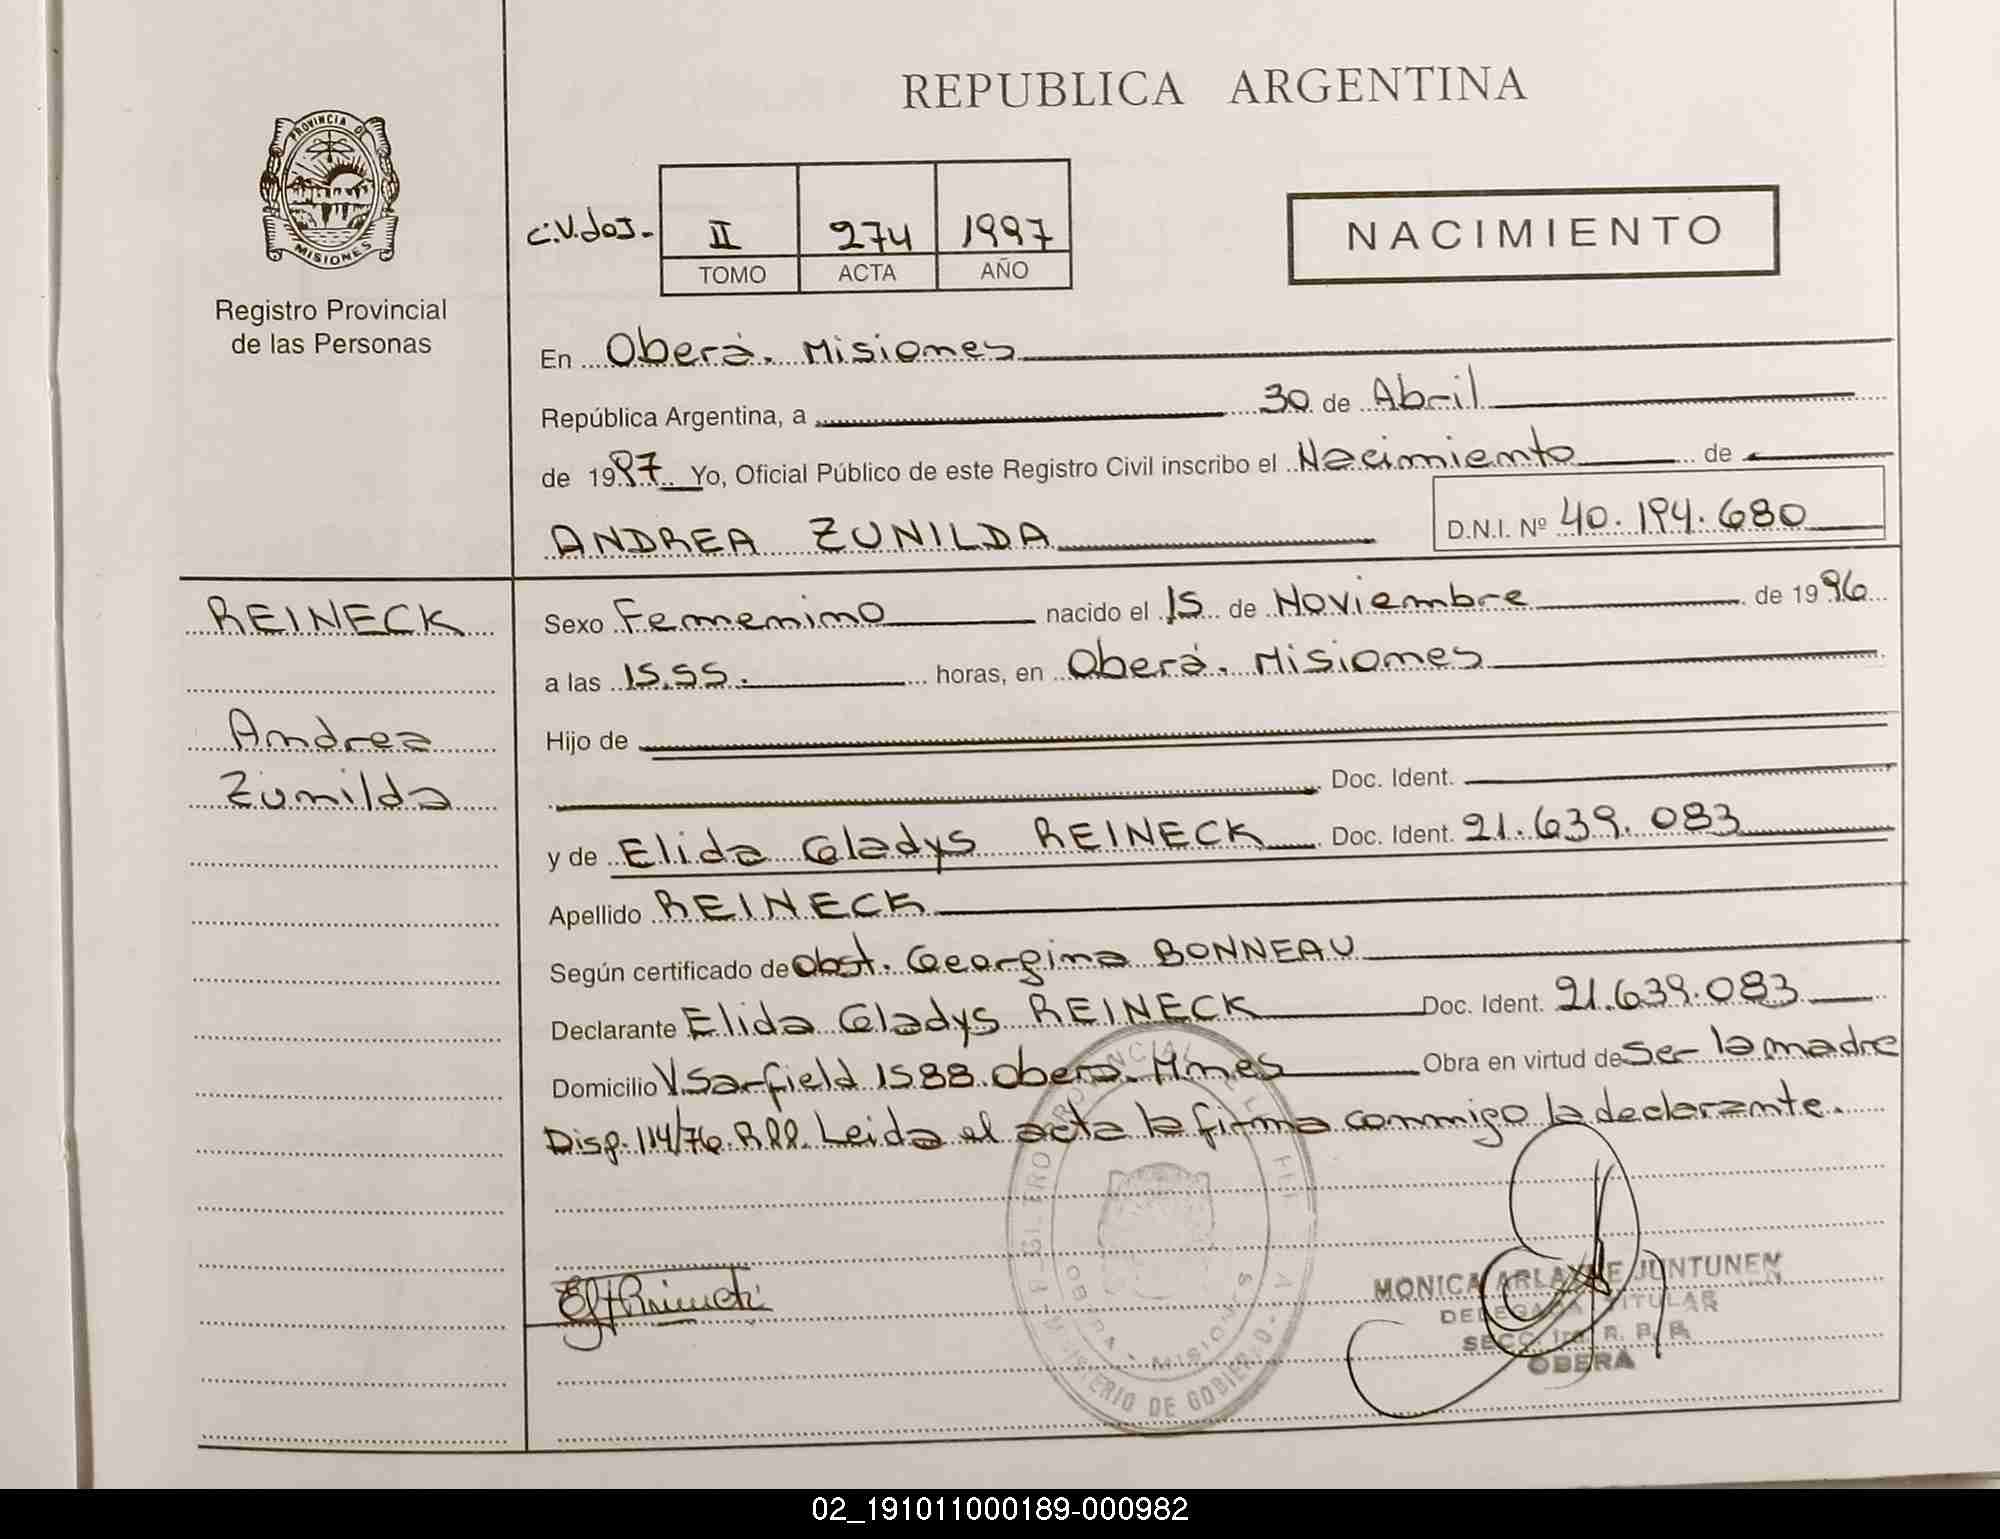 REPUBLICA ARGENTINA
PROVINCIA DE
MISIONES
Registro Provincial
de las Personas
C.V.dos.-
II 274 1997
TOMO ACTA AÑO
NACIMIENTO
En Oberá. Misiones
República Argentina, a 30 de Abril
de 1997 Yo, Oficial Público de este Registro Civil inscribo el Nacimiento de
ANDREA ZUNILDA D.N.I. Nº 40.194.680
REINECK
Andrea
Zunilda
Sexo Femenino nacido el 15 de Noviembre de 1996
a las 15.55. horas, en Oberá. Misiones
Hijo de
Doc. Ident.
y de Elida Gladys REINECK Doc. Ident. 21.639.083
Apellido REINECK
Según certificado de Obst. Georgina BONNEAU
Declarante Elida Gladys REINECK Doc. Ident. 21.639.083
Domicilio V.Sarfield 1588. Oberá. Mnes Obra en virtud de Ser la madre
Disp. 114/76. R.P.P. Leida el acta la firma conmigo la declarante.
MINISTERIO DE GOBIERNO
OBERA - MISIONES
MONICA ARLAYNE JUNTUNEN
DELEGADA TITULAR
SECC. 1ra. R. P. P.
OBERA
02_191011000189-000982